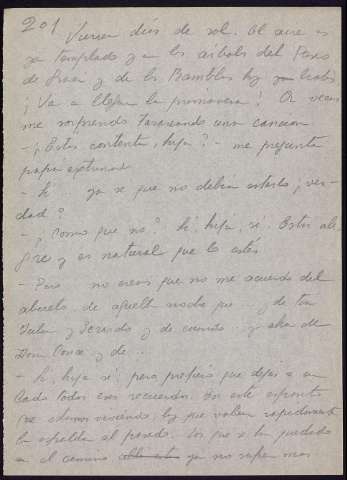 201 Vienen días de sol. El aire es
ya templado y en los árboles del Paseo
de Gracia y de las Ramblas hay ya brotes
¡Va a llegar la primavera! A veces
me sorprendo tarareando una canción
- ¿Estás contenta, hija? - me pregunta
papá extrañado
- Sí ya sé que no debía estarlo ¿ver-
dad?
- ¿Cómo que no? Sí, hija, sí. Estás ale-
gre y es natural que lo estés
- Pero no creas que no me acuerdo del
abuelo, de aquella noche que... y de tía
Julia y Gerardo y de cuando... y ahora de
Doña Concha y de...
- Sí, hija sí, pero prefiero que dejes a un
lado todos esos recuerdos. En este
que estamos viviendo, hay que volver rápidamente
la espalda al pasado. Los que se han quedado
en el camino ya no sufren mas